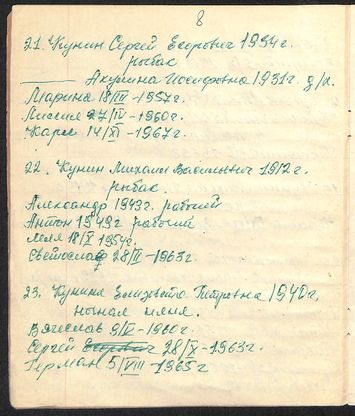 8
21. Кунин Сергей Егорович 1934г.
рыбак
—— Акулина Иосифовна 1931г. д/х.
Марина 18/IV-1957г.
Лилия 27/IV-1960г.
Карл 14/XI-1967г.
22. Кунин Михаил Васильевич 1912г.
рыбак.
Александр 1943г. рабочий
Антон 1949г рабочий
Леля 18/X 1954г.
Светослав 28/II-1963г.
23. Кунина Елизавета Петровна 1940г.
ночная няня.
Вячеслав 9/V-1960г.
Сергей Егорович 28/X-1963г.
Герман 5/VIII-1965г